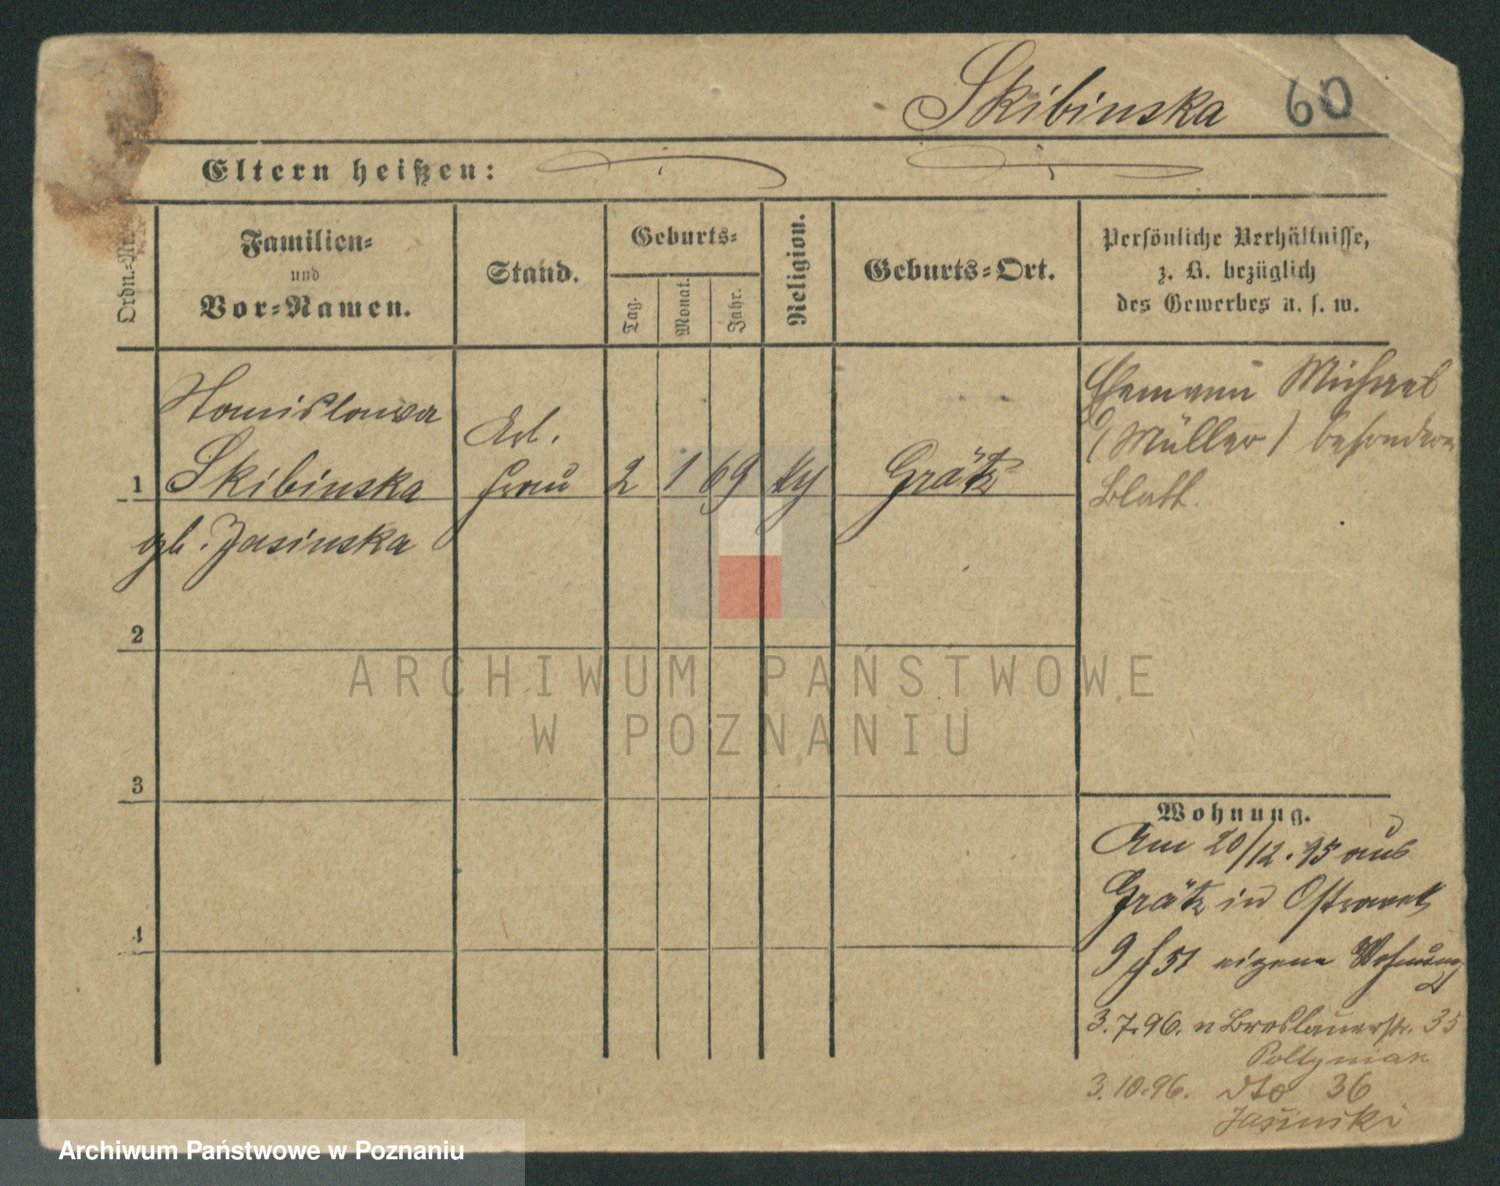 Skibinska 60
Eltern heißen:
Ordn.-Nr.
Familien-
und
Vor-Namen.
Stand.
Geburts-
Tag.
Monat.
Jahr.
Religion.
Geburts-Ort.
Persönliche Verhältnisse,
z. B. bezüglich
des Gewerbes u. s. w.
Stanislawa
Skibinska
gb. Jasinska
Arb.
frau
1
2
1
69
Grätz
Ehemann Michael
(Müller) besonderes
Blatt.
2
3
4
Wohnung.
Am 20/12.95 aus
Grätz in
eigene Wohnung
3.7.96. n Breslauerstr. 35
3.10.96. dto 36
Jasinski
ARCHIWUM PAŃSTWOWE
W POZNANIU
Archiwum Państwowe w Poznaniu